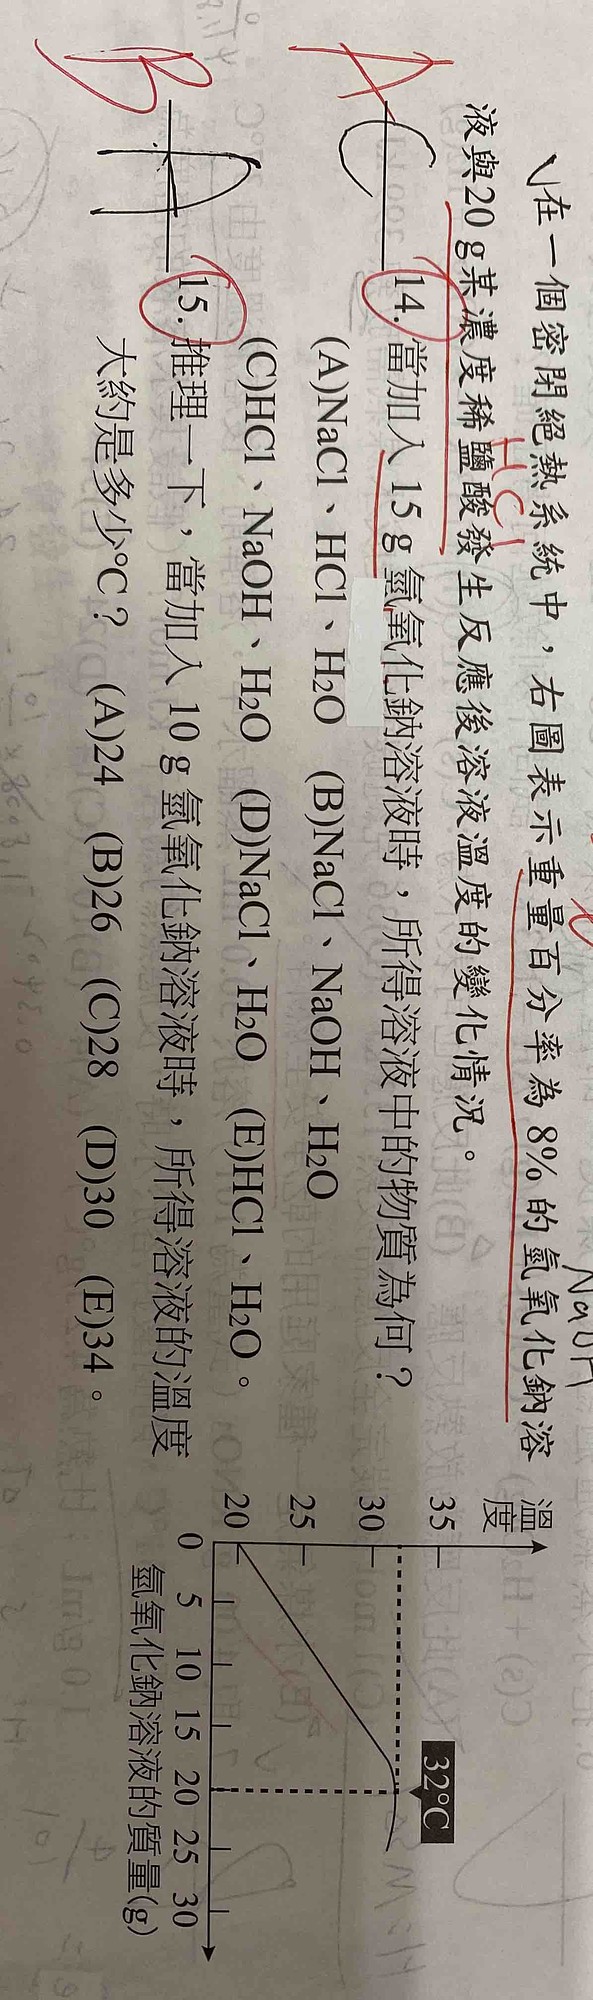 在一個密閉絕熱系統中，右圖表示重量百分率為 8% 的氫氧化鈉溶
NaOH
液與20 g某濃度稀鹽酸發生反應後溶液溫度的變化情況。
HCl
A
C
14. 當加入 15 g 氫氧化鈉溶液時，所得溶液中的物質為何？
(A)NaCl、HCl、H₂O (B)NaCl、NaOH、H₂O
(C)HCl、NaOH、H₂O (D)NaCl、H₂O (E)HCl、H₂O。
B
A
15. 推理一下，當加入 10 g 氫氧化鈉溶液時，所得溶液的溫度
大約是多少℃？ (A)24 (B)26 (C)28 (D)30 (E)34。
溫度
35
30
25
20
32℃
0 5 10 15 20 25 30
氫氧化鈉溶液的質量(g)